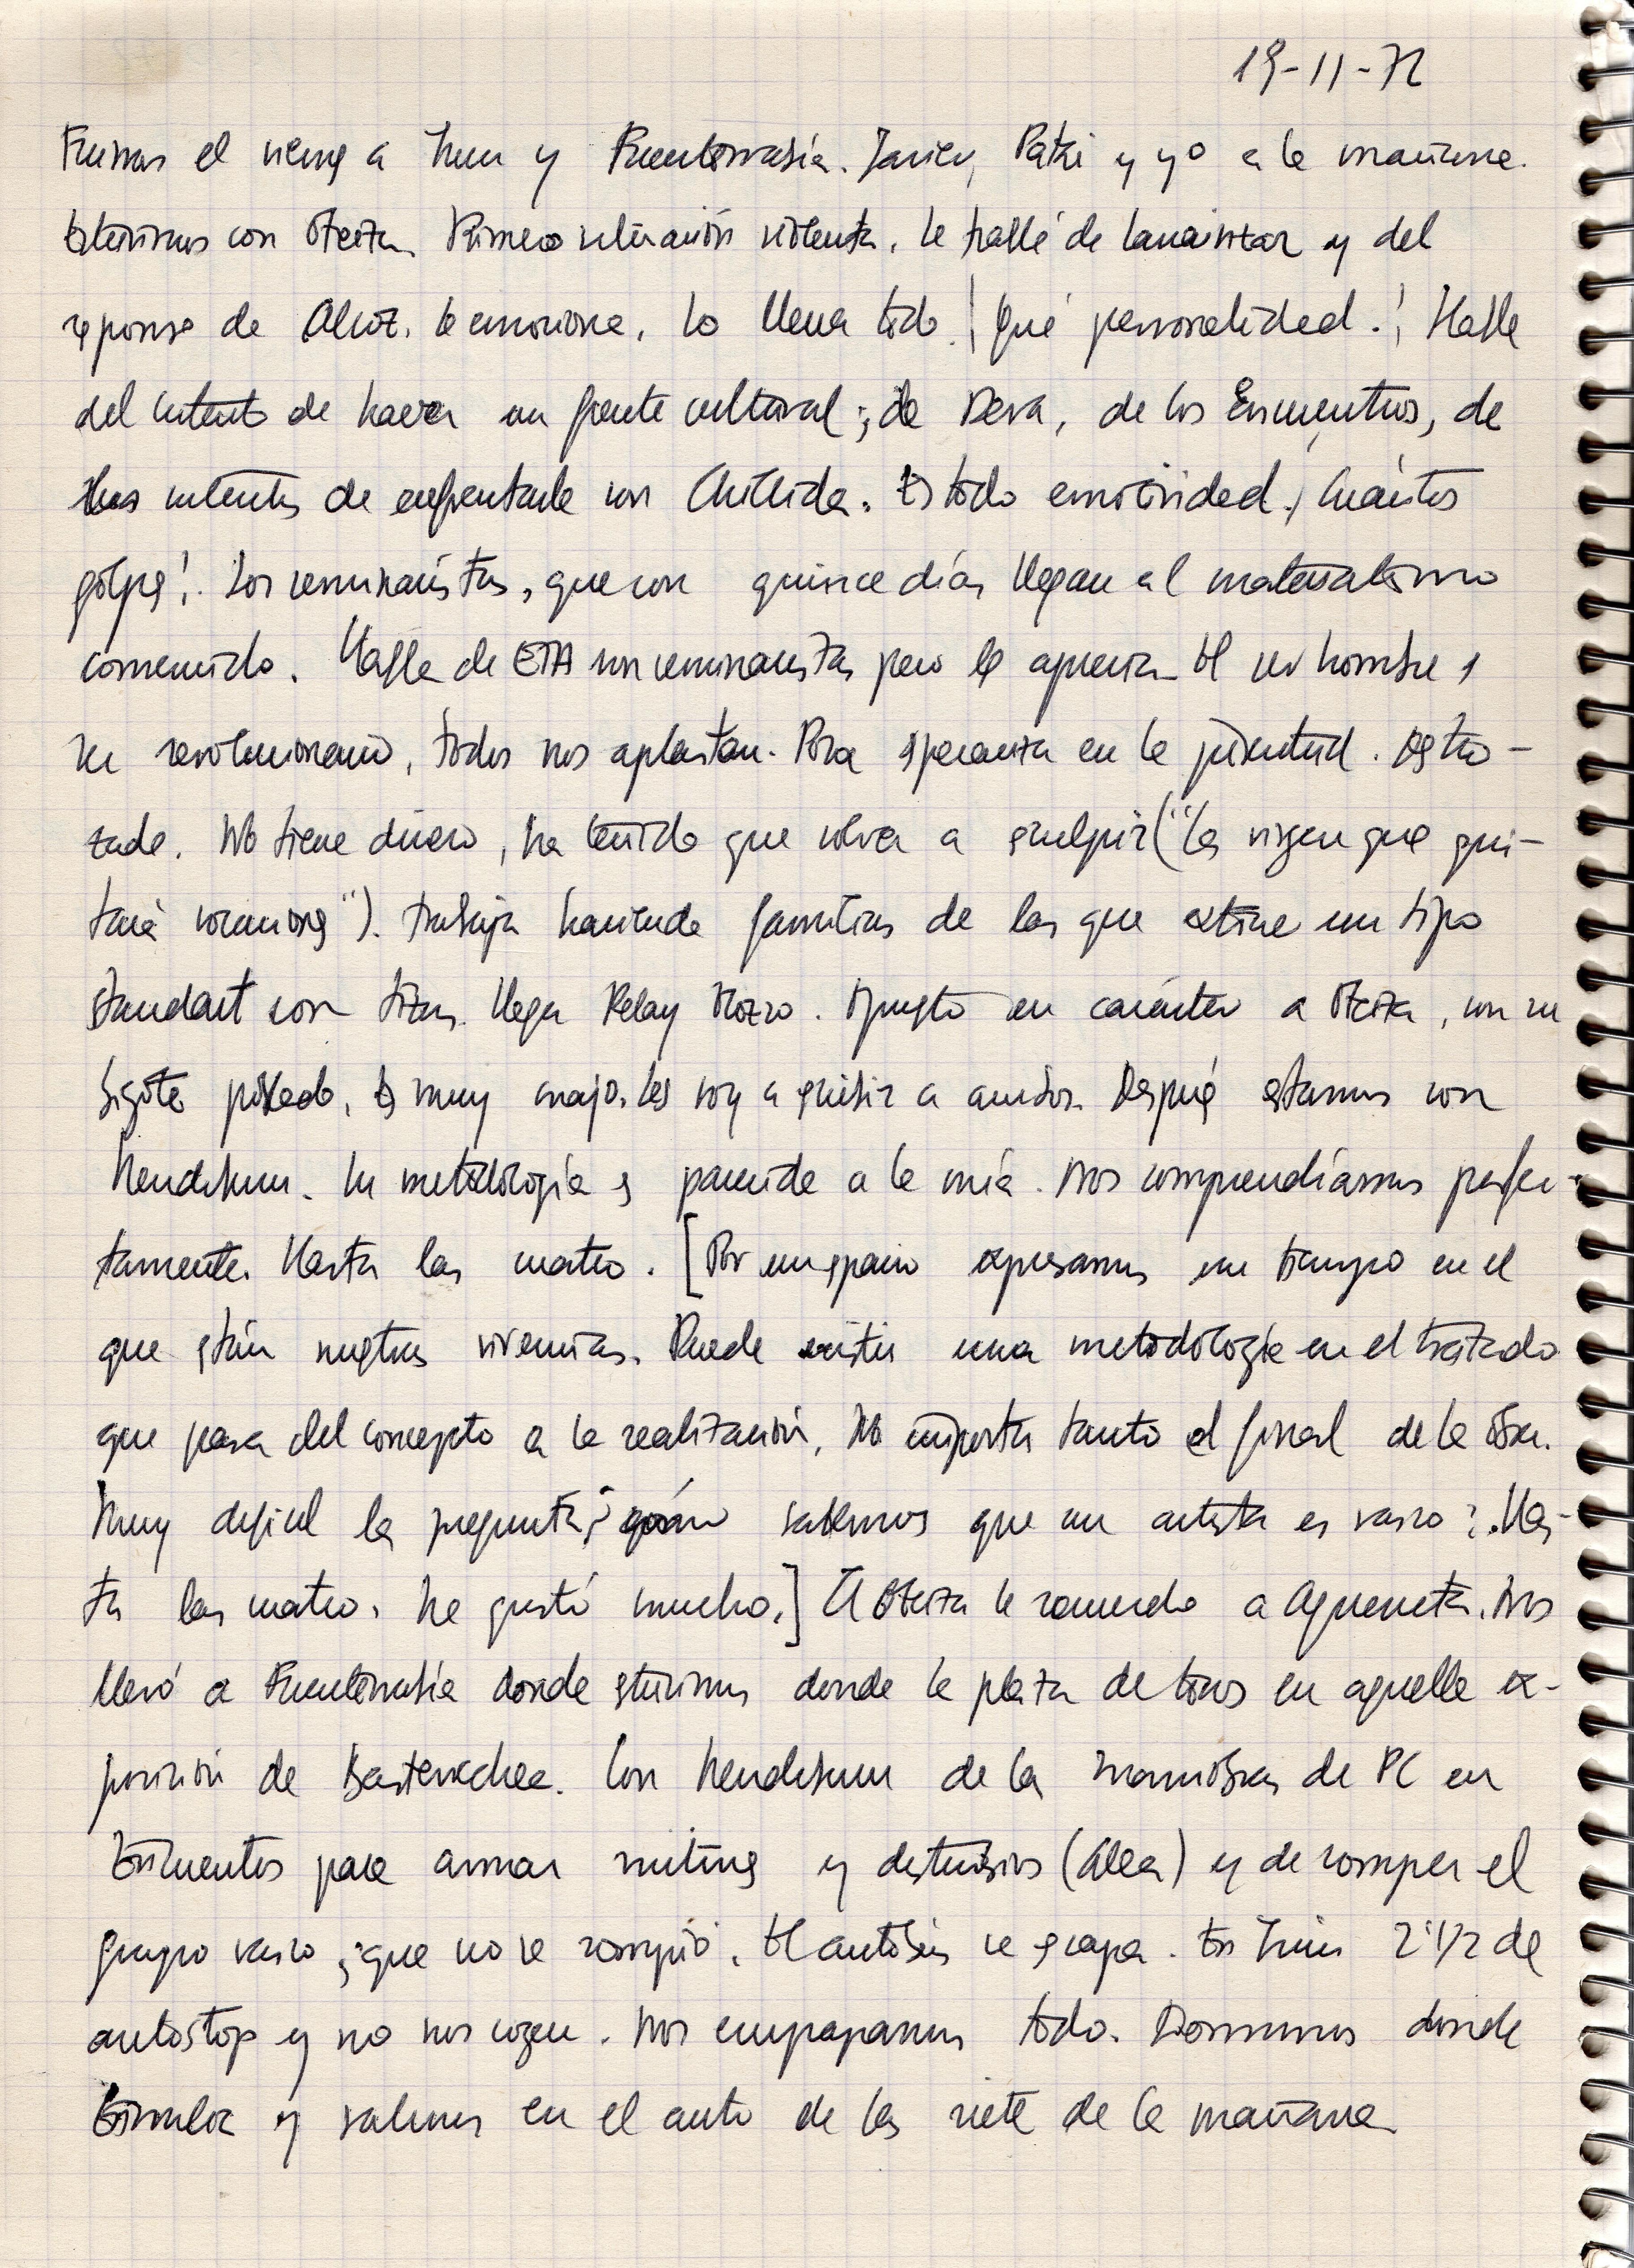 19-11-72
Fuimos el viernes a Irun y Fuenterrabía. Javier, Patxi y yo a la mañana.
Estuvimos con Oteiza. Primero situación violenta. Le hablé de y del
responso de Alzoz. Se emociona. Lo llena todo. ¡Qué personalidad.! Habla
del intento de hacer un frente cultural; de Deva, de los Encuentros, de
los intentos de enfrentarle con Chillida. Es todo emotividad. ¡Cuántos
golpes!. Los seminaristas, que con quince días llegan al materialismo
convencido. Habla de ETA son seminaristas pero le aprecian. El ser hombre y
ser revolucionario, todos nos aplastan. Poca esperanza en la juventud. Destro-
zado. No tiene dinero, ha tenido que volver a esculpir ("la virgen que qui-
tará vocaciones"). Trabaja haciendo familias de las que extrae un tipo
standart con tizas. Llega Pelay Orozco. Opuesto en carácter a Oteiza, con su
bigote poblado. Es muy majo. Les voy a escribir a ambos. Después estamos con
Mendiburu. Su metodología es parecida a la mía. Nos comprendíamos perfec-
tamente. Hasta las cuatro. [Por un espacio expresamos un tiempo en el
que están nuestras vivencias. Puede existir una metodología en el tratado
que pasa del concepto a la realización. No importa tanto el final de la obra.
Muy difícil la pregunta ¿cómo sabemos que un artista es vasco?. Has-
ta las cuatro. Me gustó mucho.] A Oteiza le recuerdo a Agueneta. Nos
llevó a Fuenterrabía donde estuvimos donde la plaza de toros en aquella ex-
posición de Basterrechea. Con Mendiburu de la maniobras de PC en
Encuentros para armar mitines y destruirlos (Alea) y de romper el
grupo vasco ¡que no se rompió. El autobús se escapa. En Irún 2'1/2 de
autostop y no nos cogen. Nos empapamos todo. Dormimos donde
y salimos en el auto de las siete de la mañana